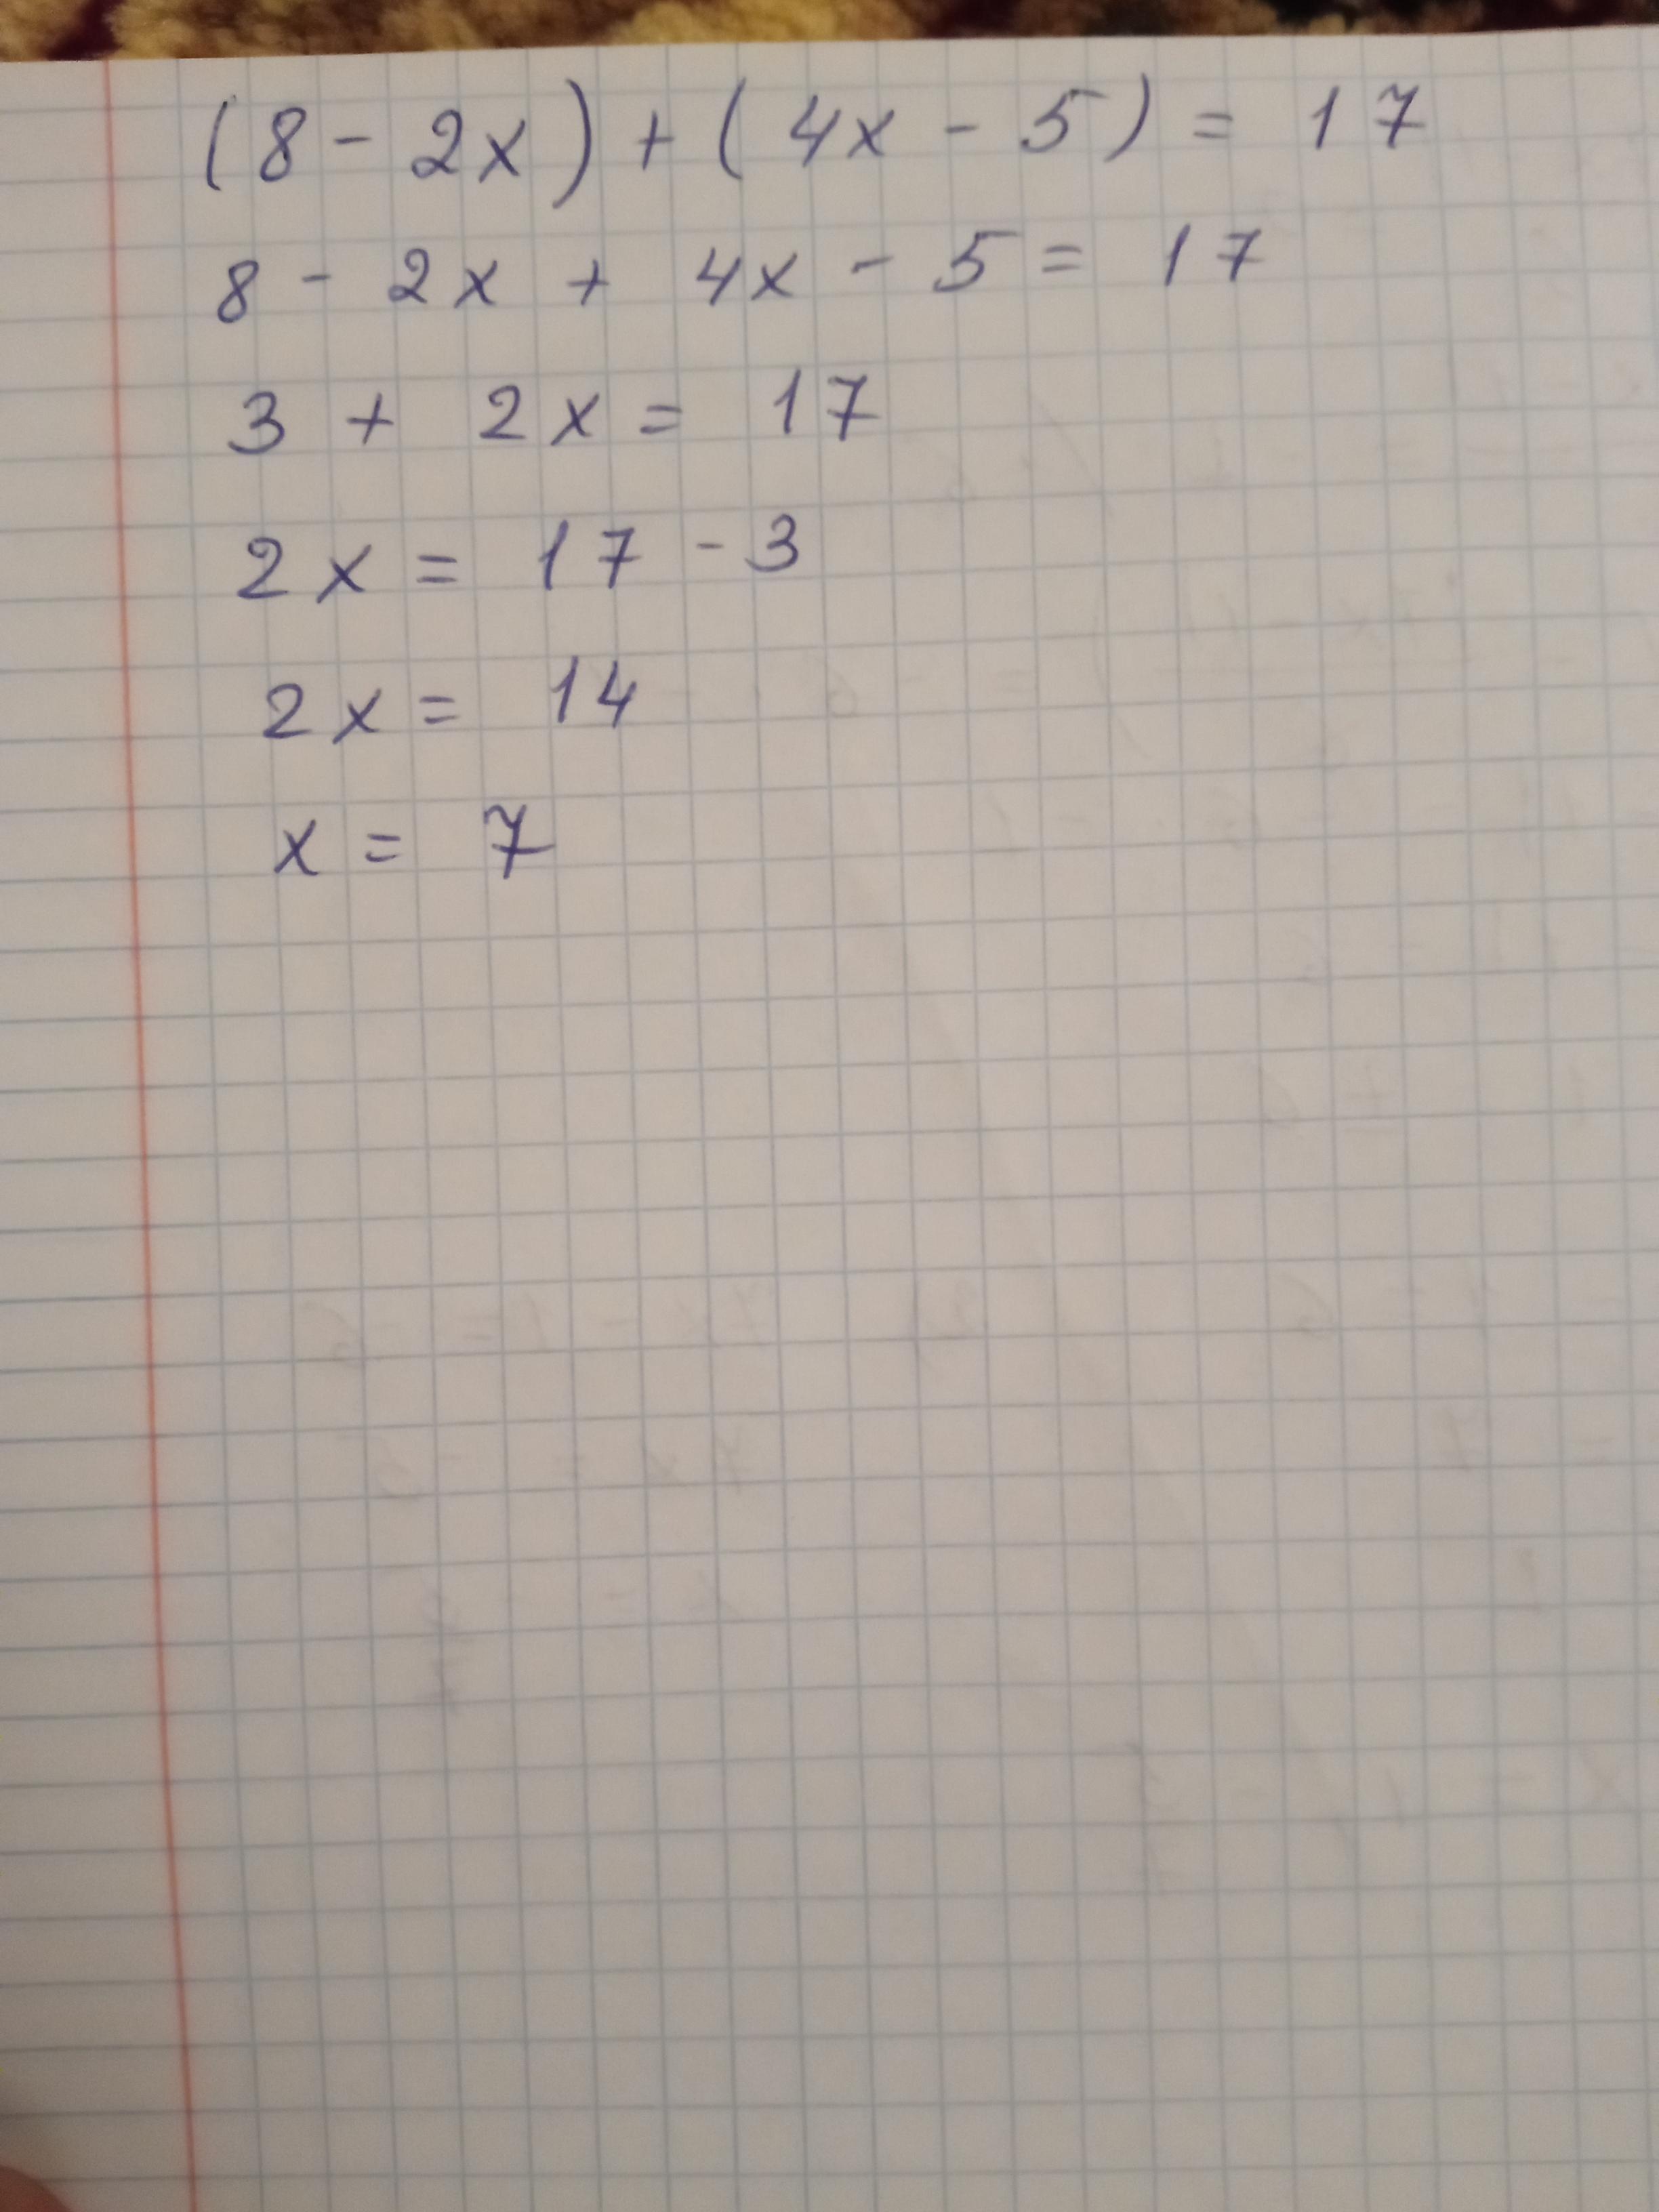 (8 - 2x) + (4x - 5) = 17
8 - 2x + 4x - 5 = 17
3 + 2x = 17
2x = 17 - 3
2x = 14
x = 7